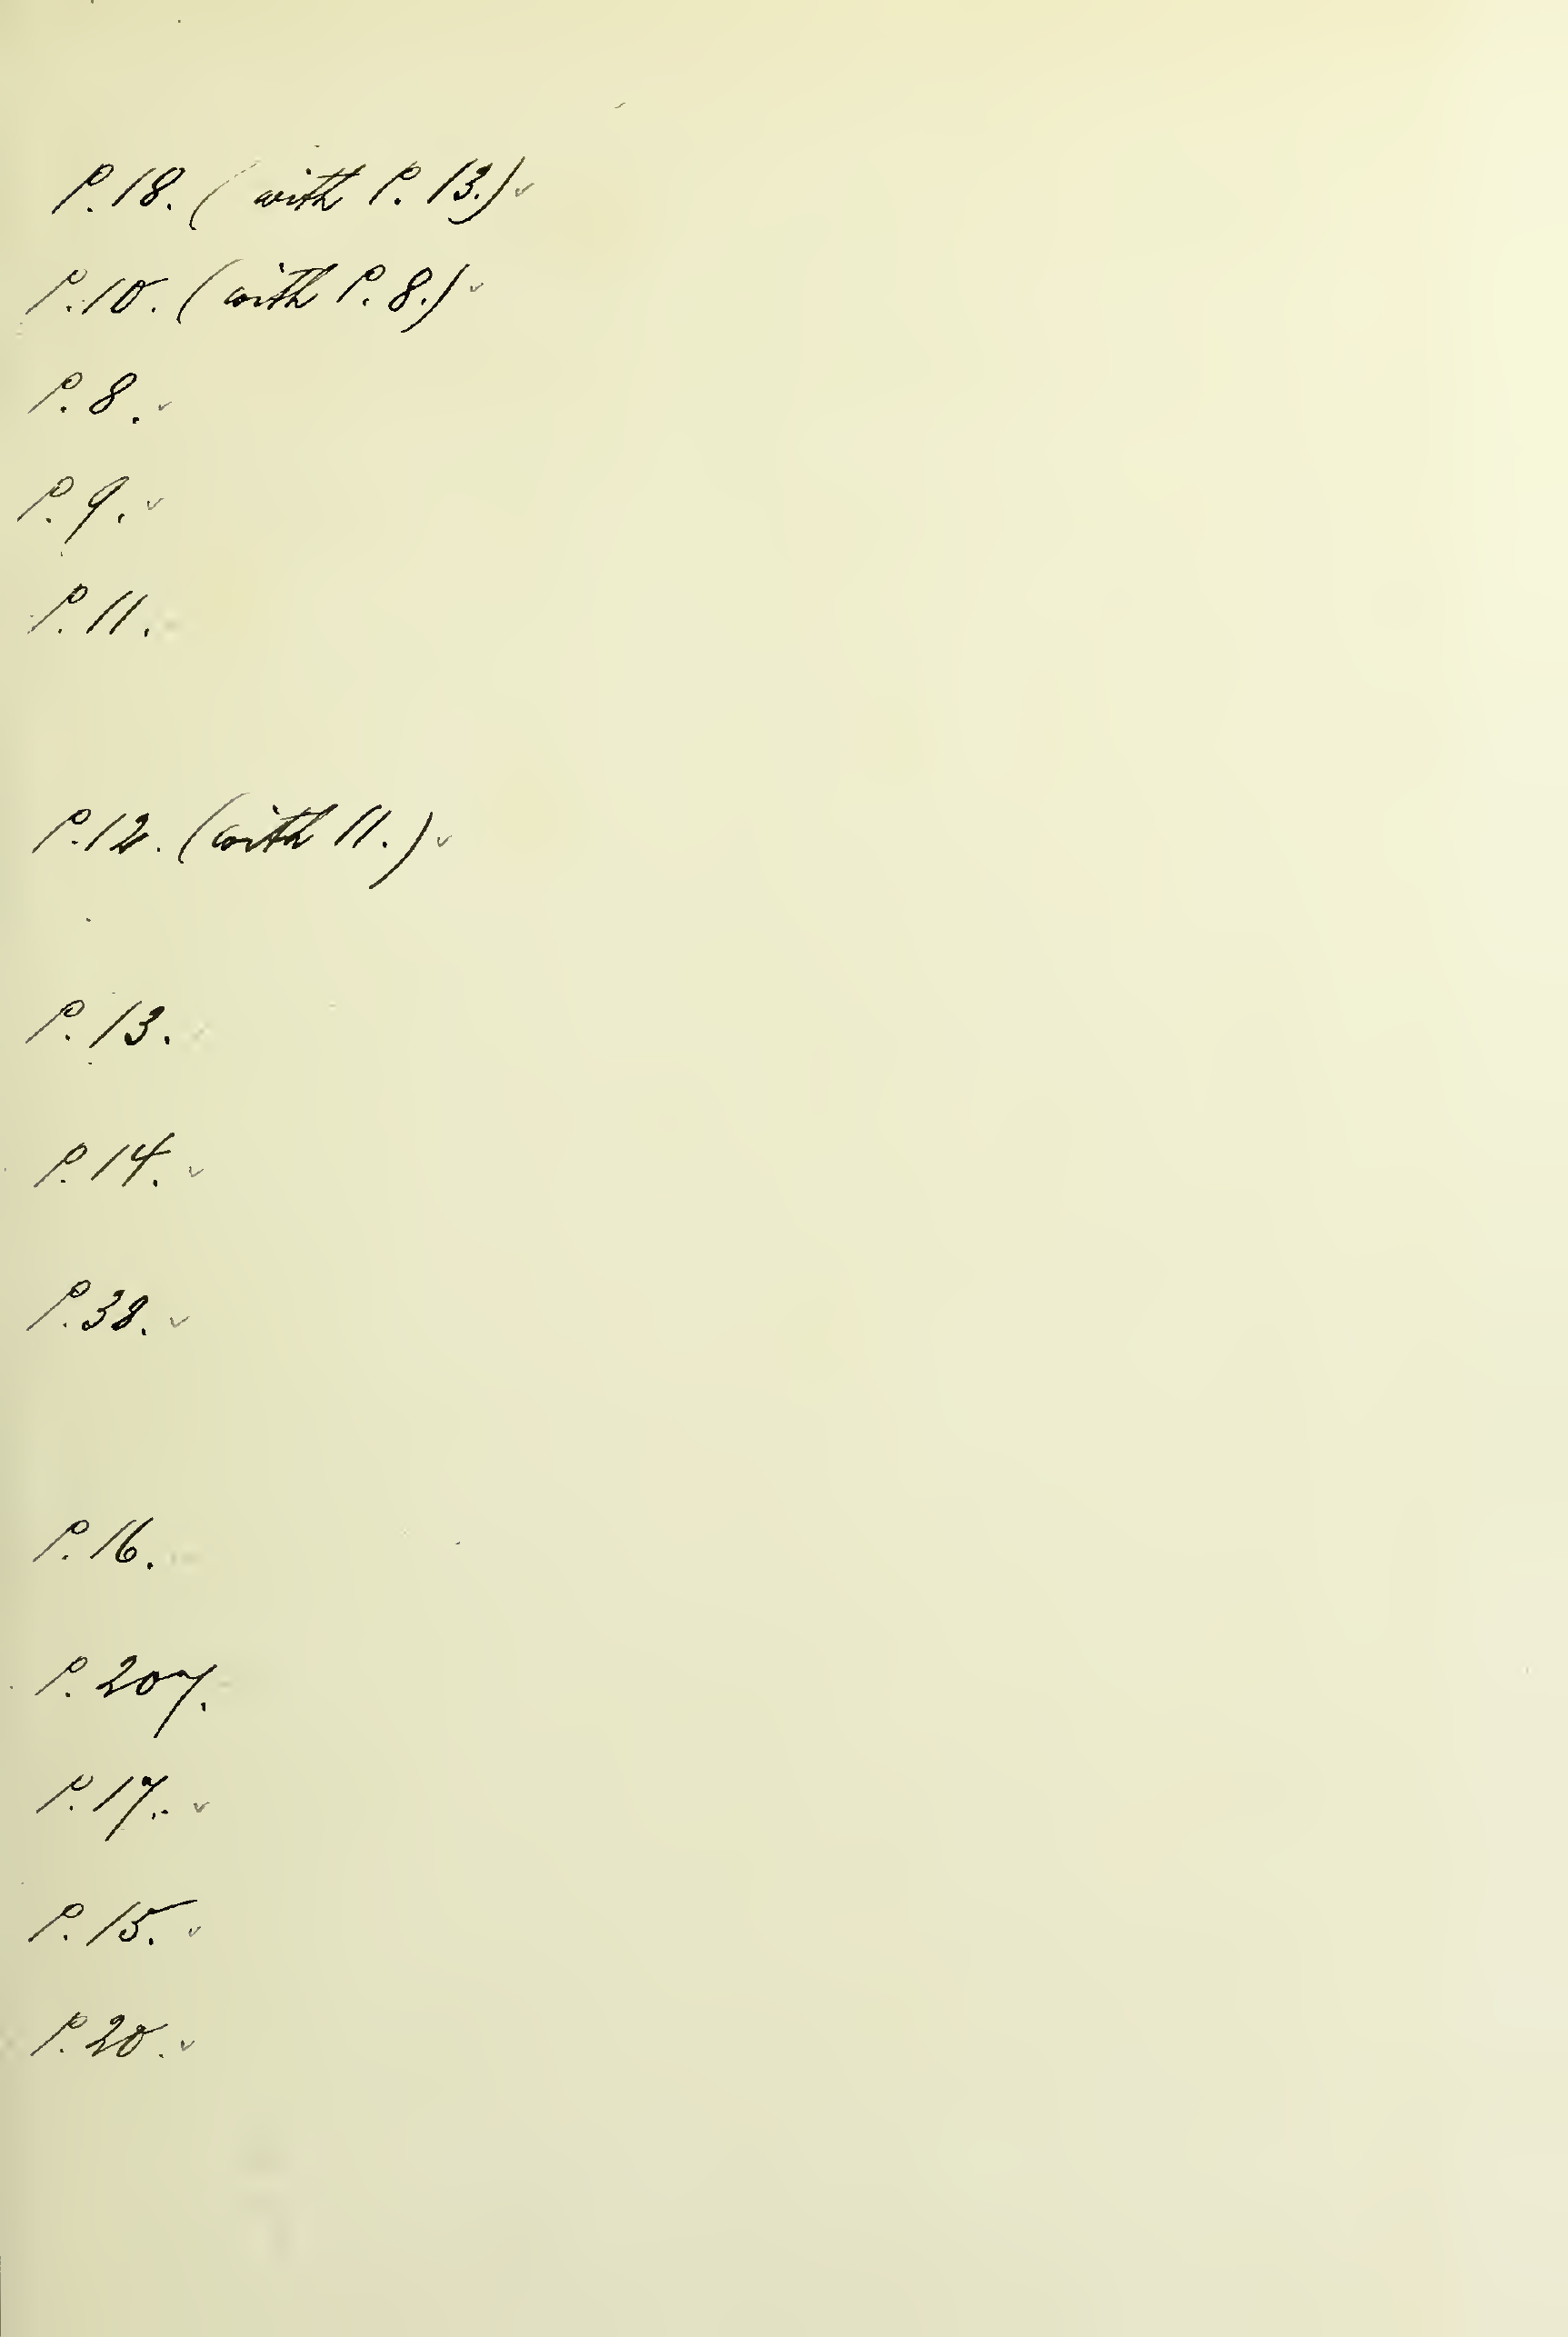 P. 18. (with P. 13.) ✓
P. 10. (with P. 8.) ✓
P. 8. ✓
P. 9. ✓
P. 11.
P. 12. (with 11.) ✓
P. 13.
P. 14. ✓
P. 38. ✓
P. 16.
P. 207.
P. 17. ✓
P. 15. ✓
P. 20. ✓